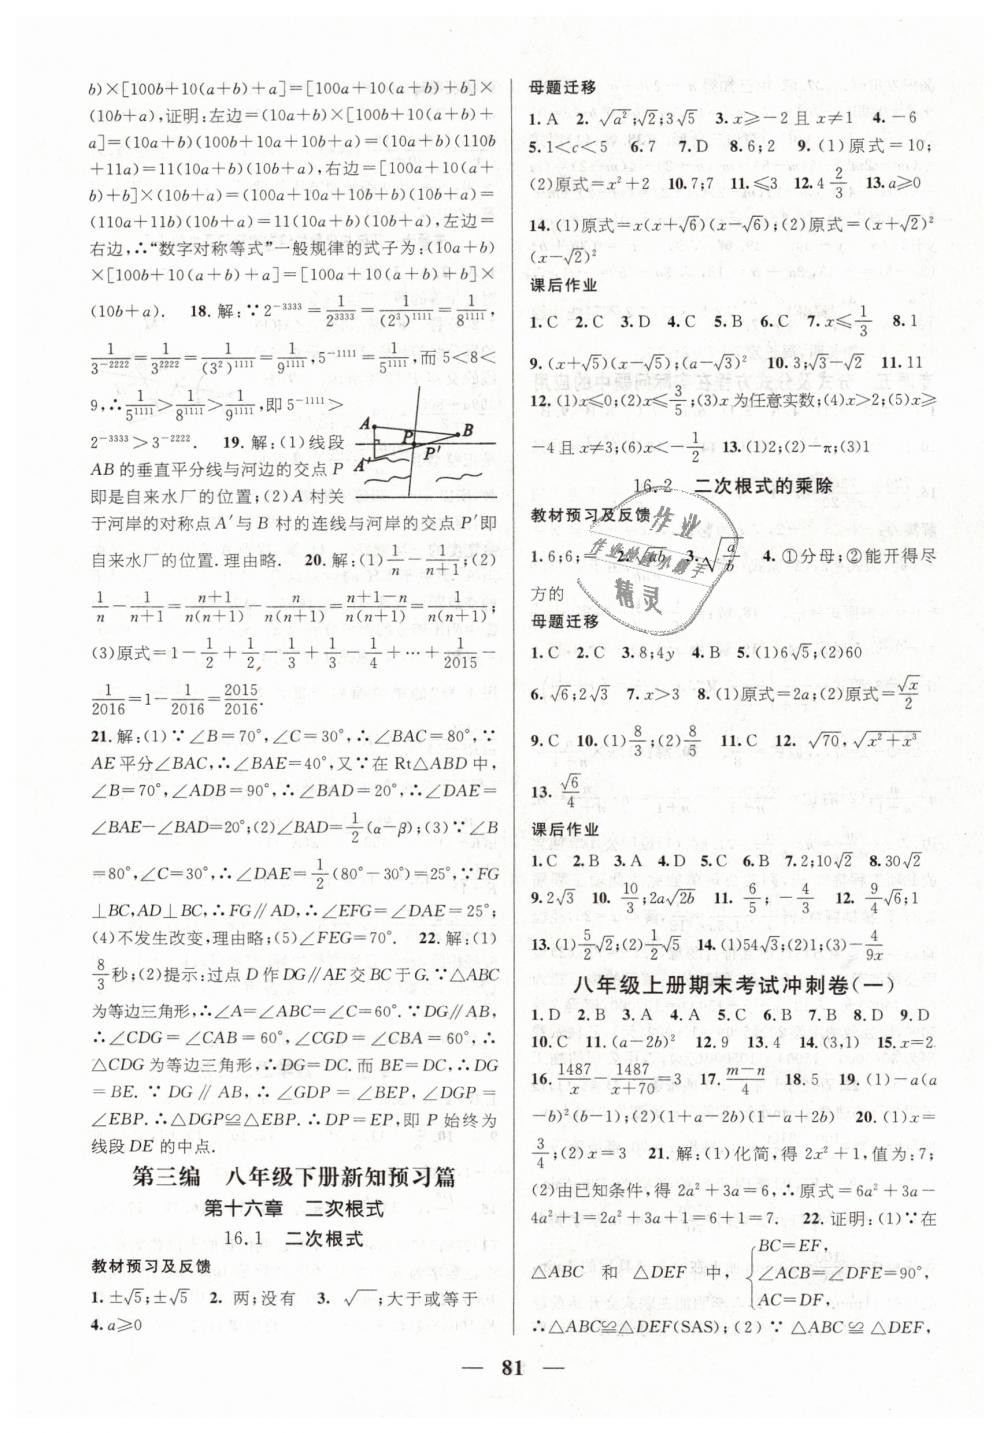 b)×[100b+10(a+b)+a]=[100a+10(a+b)+b]×
(10b+a),证明:左边=(10a+b)×[100b+10(a+b)+
a]=(10a+b)(100b+10a+10b+a)=(10a+b)(110b
+11a)=11(10a+b)(10b+a),右边=[100a+10(a+
b)+b]×(10b+a)=(100a+10a+10b+b)(10b+a)=
(110a+11b)(10b+a)=11(10a+b)(10b+a),左边=
右边,∴“数字对称等式”一般规律的式子为:(10a+b)
×[100b+10(a+b)+a]=[100a+10(a+b)+b]×
(10b+a). 18. 解:∵2^{-3333}=1/2^{3333}=1/(2^3)^{1111}=1/8^{1111},
1/3^{-2222}=1/3^{2222}=1/(3^2)^{1111}=1/9^{1111},5^{-1111}=1/5^{1111},而5<8<
9,∴1/5^{1111}>1/8^{1111}>1/9^{1111},即5^{-1111}>
2^{-3333}>3^{-2222}. 19. 解:(1)线段
AB的垂直平分线与河边的交点P
即是自来水厂的位置;(2)A村关
于河岸的对称点A′与B村的连线与河岸的交点P′即
自来水厂的位置.理由略. 20. 解:(1)1/n-1/(n+1);(2)
1/n-1/(n+1)=(n+1)/n(n+1)-n/n(n+1)=(n+1-n)/n(n+1)=1/n(n+1);
(3)原式=1-1/2+1/2-1/3+1/3-1/4+…+1/2015-
1/2016=1-1/2016=2015/2016.
21. 解:(1)∵∠B=70°,∠C=30°,∴∠BAC=80°,∵
AE平分∠BAC,∴∠BAE=40°,又∵在Rt△ABD中,
∠B=70°,∠ADB=90°,∴∠BAD=20°,∴∠DAE=
∠BAE-∠BAD=20°;(2)∠BAD=1/2(α-β);(3)∵∠B
=80°,∠C=30°,∴∠DAE=1/2(80°-30°)=25°,∵FG
⊥BC,AD⊥BC,∴FG∥AD,∴∠EFG=∠DAE=25°;
(4)不发生改变,理由略;(5)∠FEG=70°. 22. 解:(1)
8/3秒;(2)提示:过点D作DG∥AE交BC于G.∵△ABC
为等边三角形,∴∠A=∠ABC=∠C=60°.∵DG∥AB,
∴∠CDG=∠CAB=60°,∠CGD=∠CBA=60°,∴
△CDG为等边三角形,∴DG=DC.而BE=DC,∴DG
=BE.∵DG∥AB,∴∠GDP=∠BEP,∠DGP=
∠EBP.∴△DGP≌△EBP.∴DP=EP,即P始终为
线段DE的中点.
第三编 八年级下册新知预习篇
第十六章 二次根式
16.1 二次根式
教材预习及反馈
1. ±√5;±√5 2. 两;没有 3. √‾;大于或等于
4. a≥0
A B P P′ A′
母题迁移
1. A 2. √a²;√2;3√5 3. x≥-2且x≠1 4. -6
5. 1<c<5 6. 7 7. D 8. 6;2 9. (1)原式=10;
(2)原式=x²+2 10. 7;7 11. ≤3 12. 4 2/3 13. a≥0
14. (1)原式=x(x+√6)(x-√6);(2)原式=(x+√2)²
(x-√2)²
课后作业
1. C 2. C 3. D 4. C 5. B 6. C 7. x≤1/3 8. 1
9. (x+√5)(x-√5);(a-√3)² 10. 3;√3-√2 11. 11
12. (1)x≤0;(2)x≤3/5;(3)x为任意实数;(4)x>2;(5)x≥
-4且x≠3;(6)x<-1/2 13. (1)2;(2)-π;(3)1
16.2 二次根式的乘除
教材预习及反馈
1. 6;6;= 2. √ab 3. √(a/b) 4. ①分母;②能开得尽
方的
母题迁移
1. C 2. C 3. 8;4y 4. B 5. (1)6√5;(2)60
6. √6;2√3 7. x>3 8. (1)原式=2a;(2)原式=√x/2
9. C 10. (1)8/3;(2)8/5 11. C 12. √70,√(x²+x³)
13. √6/4
课后作业
1. C 2. B 3. A 4. D 5. C 6. B 7. 2;10√2 8. 30√2
9. 2√3 10. 10/3;2a√2b 11. 6/5;-3/4 12. 9/4√6;1
13. (1)5/2√2;(2)1/2√5 14. (1)54√3;(2)1;(3)-4/9x
八年级上册期末考试冲刺卷(一)
1. D 2. B 3. A 4. A 5. C 6. B 7. B 8. D 9. D
10. C 11. (a-2b)² 12. 9 13. 4 14. (3,1) 15. x=2
16. 1487/x-1487/(x+70)=3 17. (m-n)/4 18. 5 19. (1)-a(a
-b)²(b-1);(2)(1+a-2b)(1-a+2b) 20. (1)x=
3/4;(2)x=3 21. 解:(1)化简,得2x²+1,值为:7;
(2)由已知条件,得2a²+3a=6,∴原式=6a²+3a-
4a²+1=2a²+3a+1=6+1=7. 22. 证明:(1)∵在
△ABC和△DEF中,{BC=EF,
∠ACB=∠DFE=90°,
AC=DF,
∴△ABC≌△DEF(SAS);(2)∵△ABC≌△DEF,
作业
作业检查小助手
精灵
— 81 —